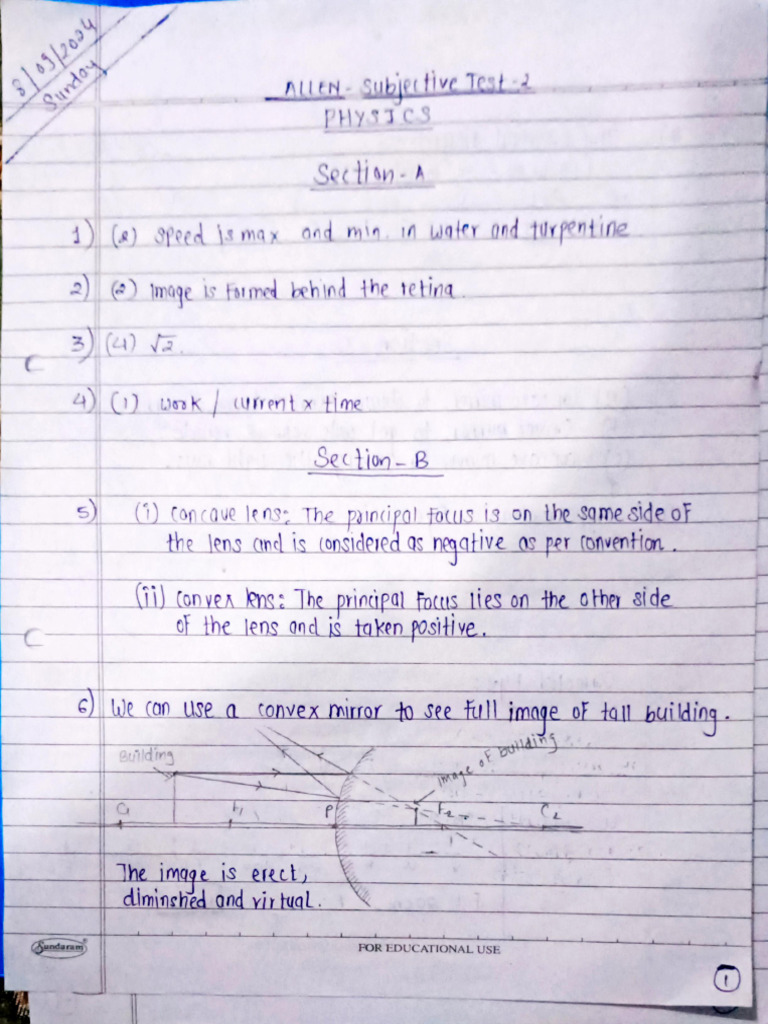 8/09/2024
Sunday
ALLEN - Subjective Test - 2
PHYSICS
Section - A
1) (2) speed is max and min. in water and turpentine
2) (2) Image is formed behind the retina.
3) (4) √2.
4) (1) work / current x time
Section - B
5) (i) concave lens: The principal focus is on the same side of
the lens and is considered as negative as per convention.
(ii) convex lens: The principal focus lies on the other side
of the lens and is taken positive.
6) We can use a convex mirror to see full image of tall building.
Building
image of building
P
F2
C2
The image is erect,
diminshed and virtual.
Sundaram
FOR EDUCATIONAL USE
1